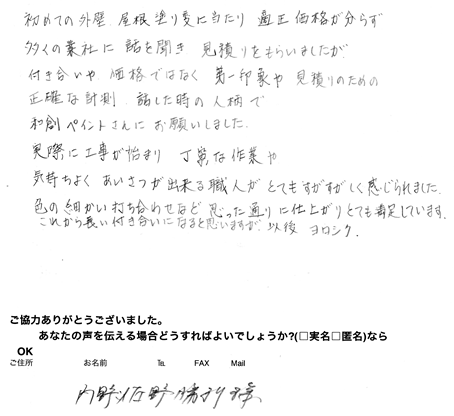 初めての外壁 屋根塗り変に当たり 適正価格が分らず
多くの業社に 話を聞き 見積りをもらいましたが
付き合いや 価格ではなく 第一印象や 見積りのための
正確な計測 話した時の人柄で
和創ペイントさんに お願いしました。
実際に工事が始まり 丁寧な作業や
気持ちよく あいさつが出来る職人が とてもすがすがしく感じられました。
色の細かい打ち合わせなど 思った通りに仕上がりとても満足しています。
これから長い付き合いになると思いますが 以後 ヨロシク。
ご協力ありがとうございました。
あなたの声を伝える場合どうすればよいでしょうか?(□実名□匿名)なら
OK
ご住所 お名前 ℡ FAX Mail